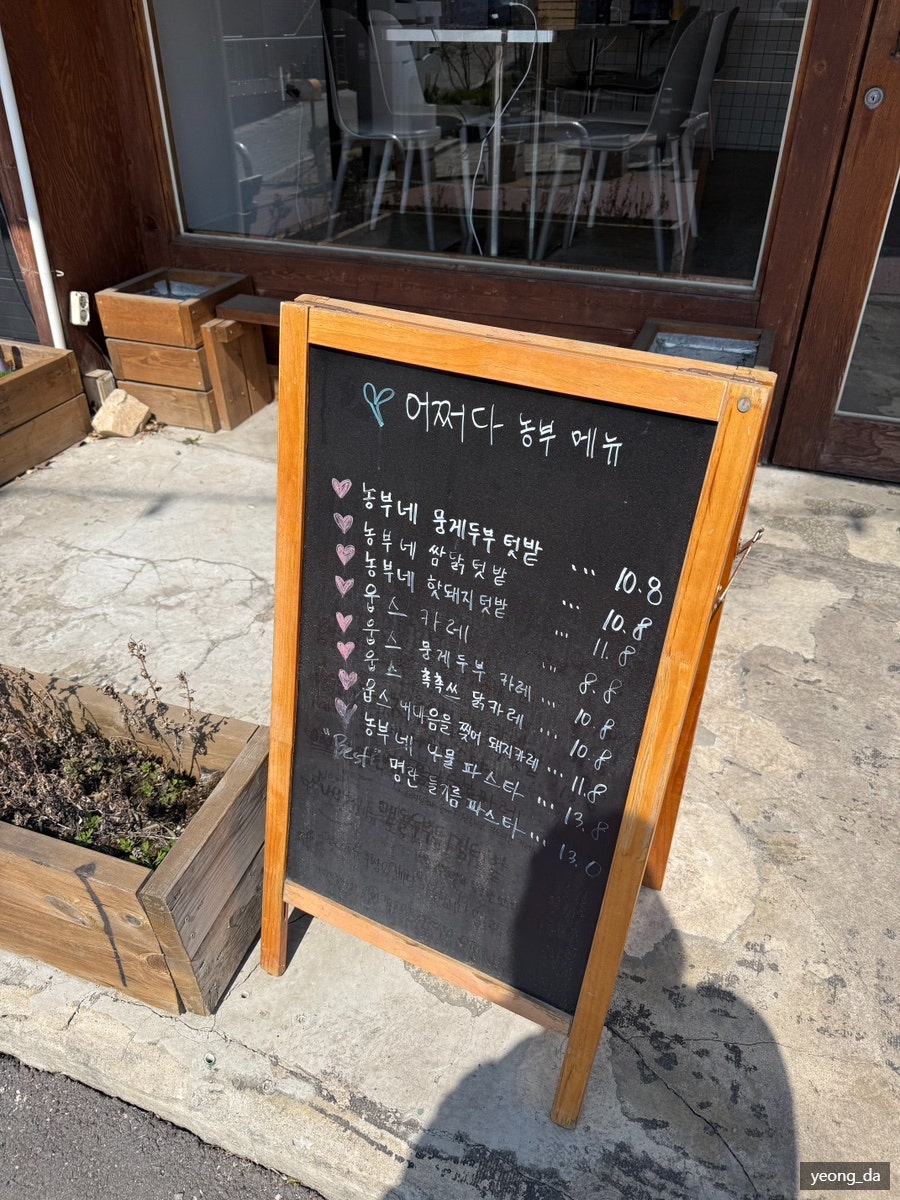 어쩌다 농부 메뉴
농부네 뭉게두부 텃밭 ... 10.8
농부네 쌈닭 텃밭 ... 10.8
농부네 핫돼지 텃밭 ... 11.8
웁스 카레 ... 8.8
웁스 뭉게두부 카레 ... 10.8
웁스 촉촉쓰 닭카레 ... 10.8
웁스 내내음을 찢어 돼지카레 ... 11.8
농부네 나물 파스타 ... 13.8
"Best" 명란 들기름 파스타 ... 13.0
yeong_da